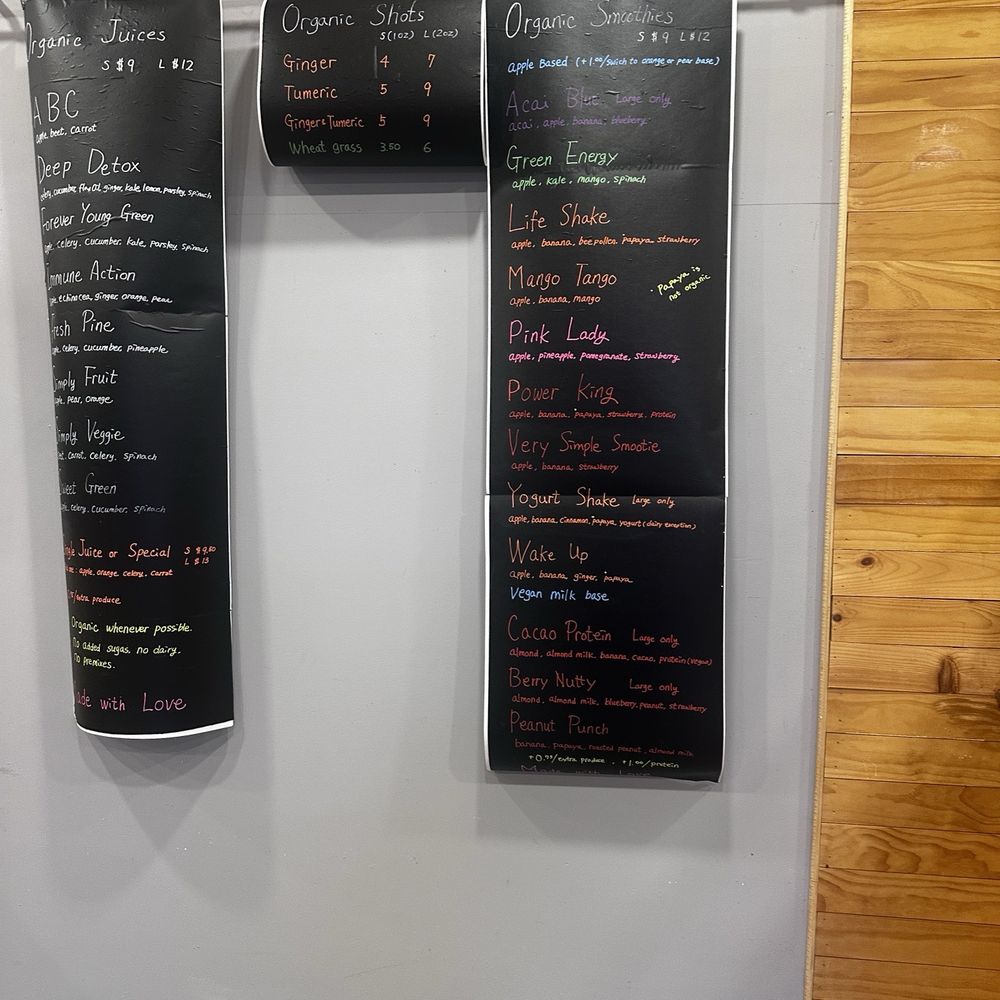 Organic Juices
S $9 L $12
ABC
apple, beet, carrot
Deep Detox
celery, cucumber, ginger, kale, lemon, parsley, spinach
Forever Young Green
apple, celery, cucumber, kale, parsley, spinach
Immune Action
apple, echinacea, ginger, orange, pear
Fresh Pine
apple, celery, cucumber, pineapple
Simply Fruit
apple, pear, orange
Simply Veggie
beet, carrot, celery, spinach
Sweet Green
apple, celery, cucumber, spinach
Single Juice or Special S $9.50
L $13
: apple, orange, celery, carrot
/extra produce
Organic whenever possible.
No added sugas, no dairy.
No premixes.
Made with Love
Organic Shots
S(1oz) L(2oz)
Ginger 4 7
Tumeric 5 9
Ginger & Tumeric 5 9
Wheat grass 3.50 6
Organic Smoothies
S $9 L $12
apple Based (+1.00/Swich to orange or pear base)
Acai Blue Large only
acai, apple, banana, blueberry
Green Energy
apple, kale, mango, spinach
Life Shake
apple, banana, bee pollen, papaya, strawberry
Mango Tango
apple, banana, mango
· Papaya is
not organic
Pink Lady
apple, pineapple, pomegranate, strawberry
Power King
apple, banana, papaya, strawberry, protein
Very Simple Smootie
apple, banana, strawberry
Yogurt Shake Large only
apple, banana, cinnamon, papaya, yogurt (dairy exception)
Wake Up
apple, banana, ginger, papaya
Vegan milk base
Cacao Protein Large only
almond, almond milk, banana, cacao, protein (vegan)
Berry Nutty Large only
almond, almond milk, blueberry, peanut, strawberry
Peanut Punch
banana, papaya, roasted peanut, almond milk
+0.99/extra produce · +1.00/protein
Made with Love